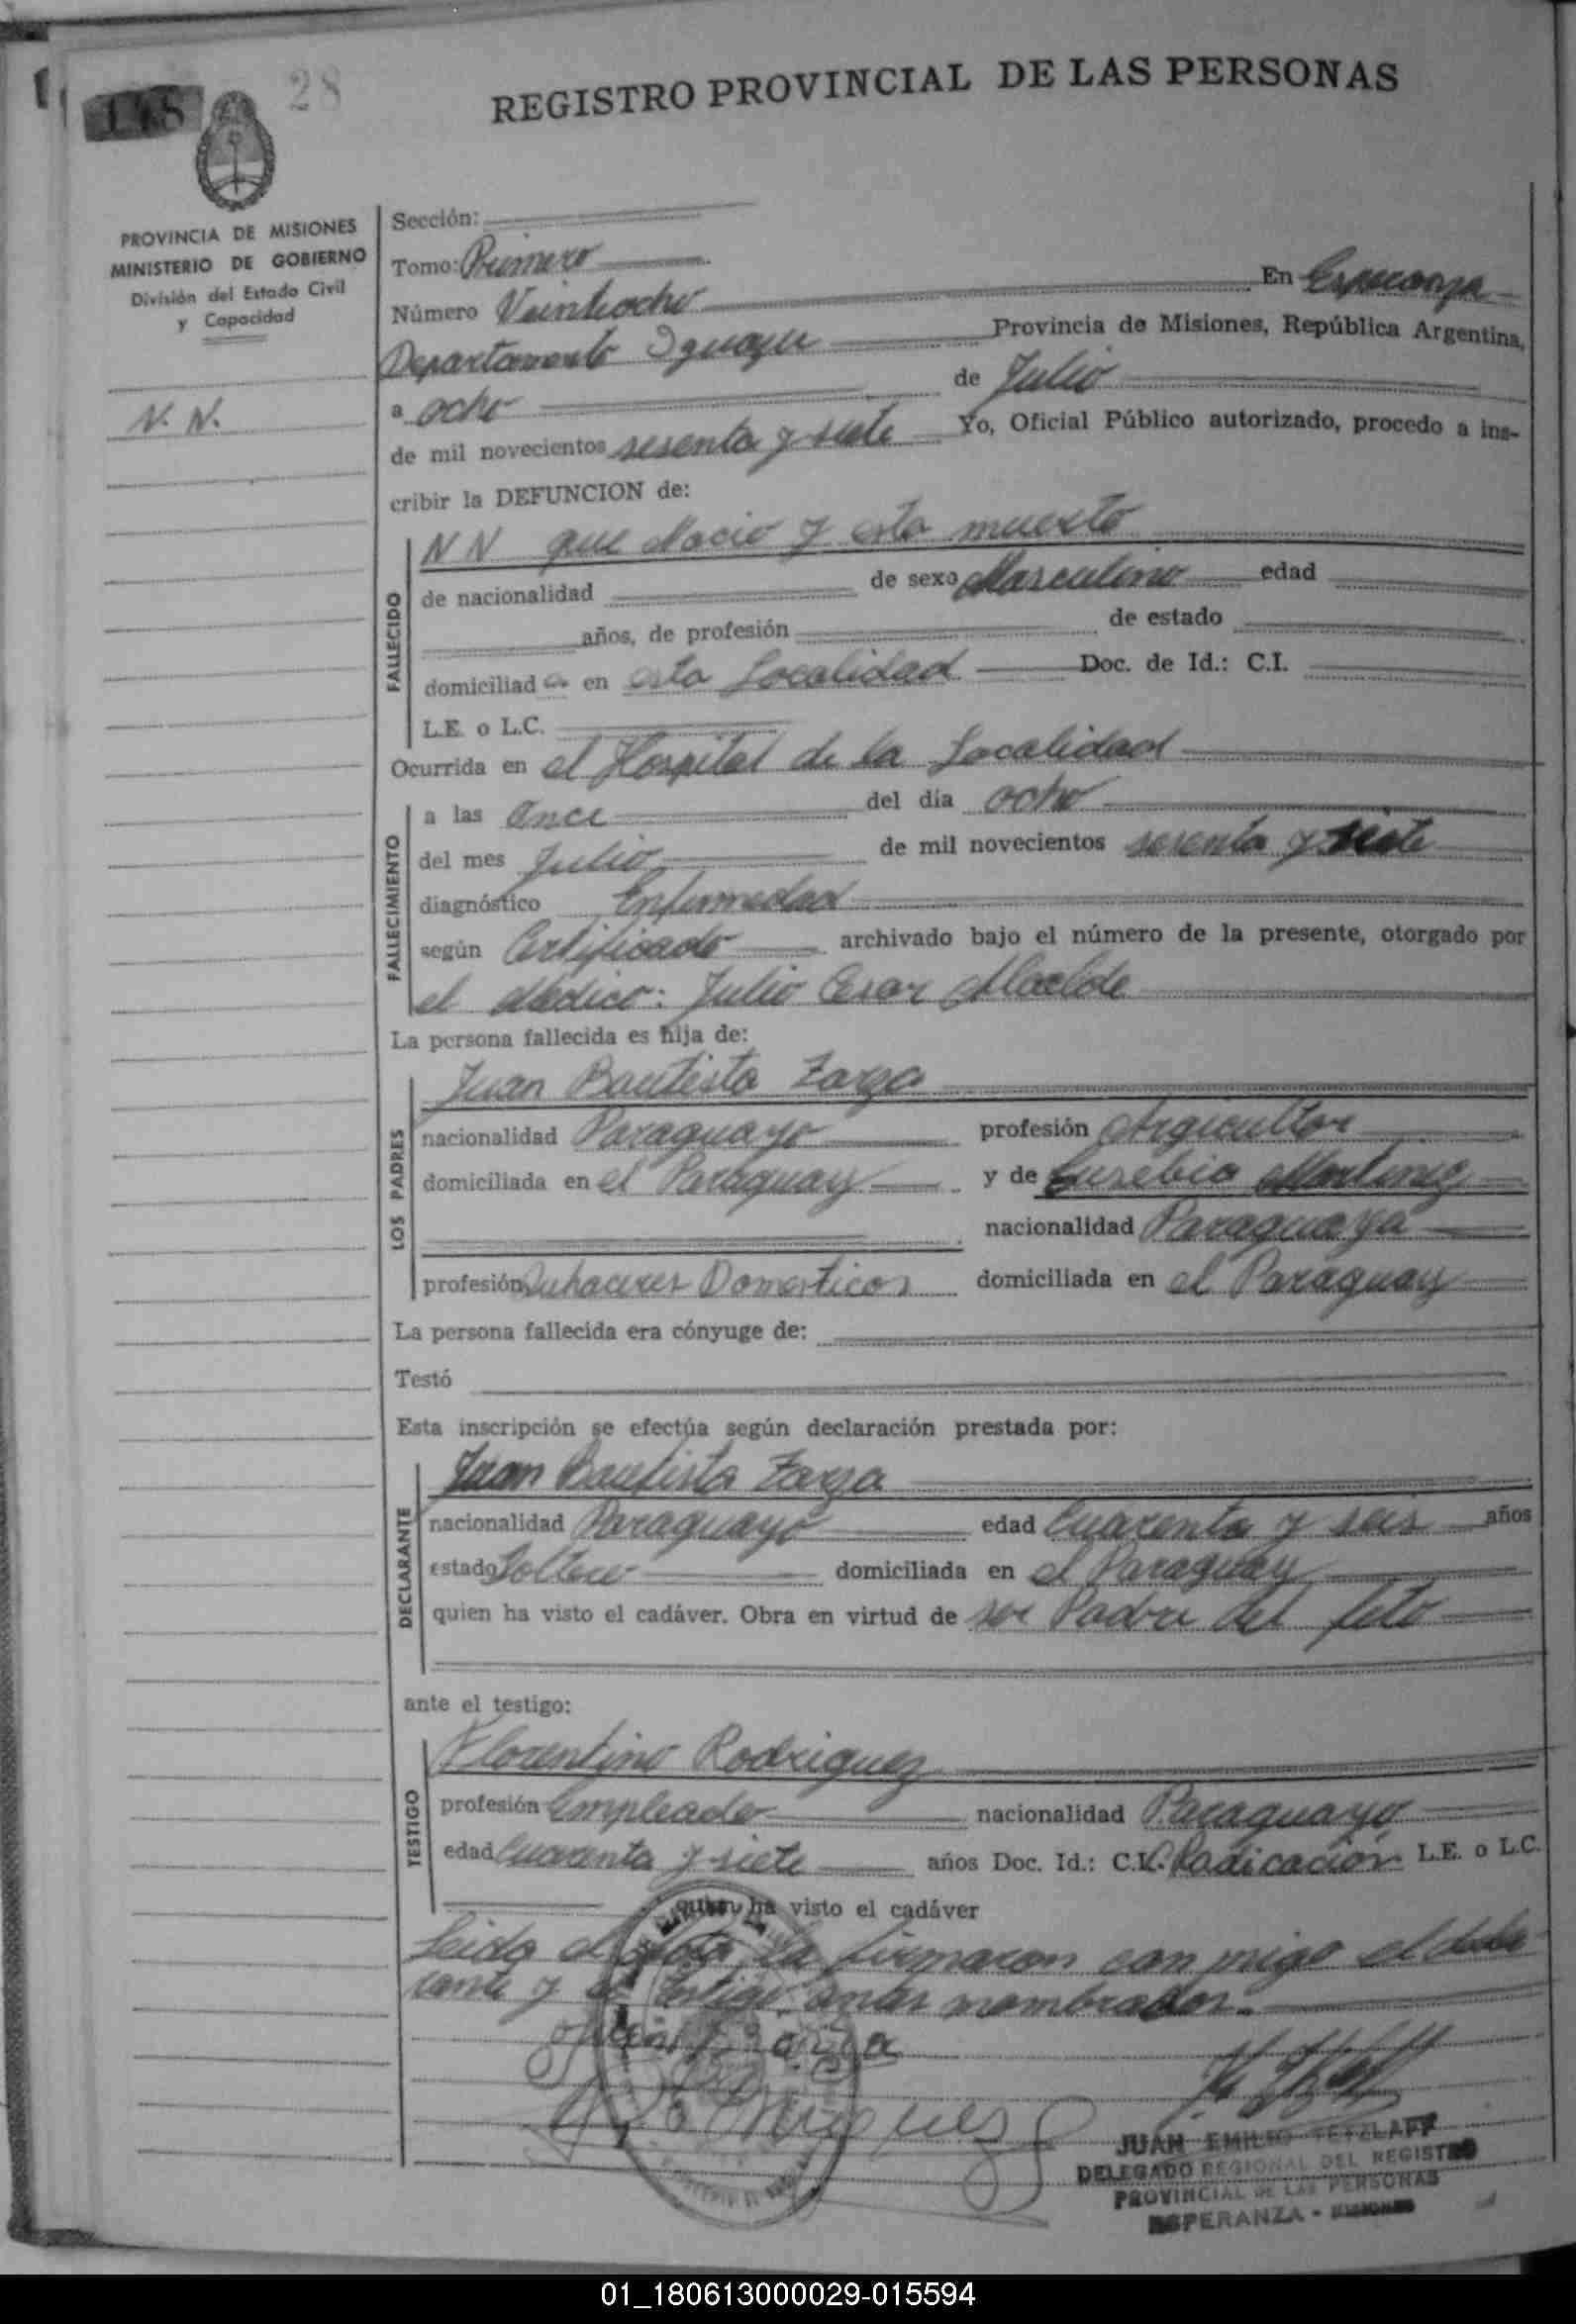 148
28
REGISTRO PROVINCIAL DE LAS PERSONAS
PROVINCIA DE MISIONES
MINISTERIO DE GOBIERNO
División del Estado Civil
y Capacidad
N. N.
Sección:
Tomo: Primero
Número Veintiocho En Esperanza
Departamento Iguazu Provincia de Misiones, República Argentina,
a ocho de Julio
de mil novecientos sesenta y siete Yo, Oficial Público autorizado, procedo a ins-
cribir la DEFUNCION de:
FALLECIDO
NN que Nacio y esta muerto
de nacionalidad de sexo Masculino edad
años, de profesión de estado
domiciliad o en esta Localidad Doc. de Id.: C.I.
L.E. o L.C.
Ocurrida en el Hospital de la Localidad
FALLECIMIENTO
a las Once del día ocho
del mes Julio de mil novecientos sesenta y siete
diagnóstico Enfermedad
según Certificado archivado bajo el número de la presente, otorgado por
el Medico: Julio Cesar
La persona fallecida es hija de:
LOS PADRES
Juan Bautista Zarza
nacionalidad Paraguayo profesión Argicultor
domiciliada en el Paraguay y de Eusebia Martinez
nacionalidad Paraguaya
profesión Quhaceres Domesticos domiciliada en el Paraguay
La persona fallecida era cónyuge de:
Testó
Esta inscripción se efectúa según declaración prestada por:
DECLARANTE
Juan Bautista Zarza
nacionalidad Paraguayo edad Cuarenta y seis años
estado Soltero domiciliada en el Paraguay
quien ha visto el cadáver. Obra en virtud de ser Padre del feto
ante el testigo:
TESTIGO
Florentino Rodriguez
profesión Empleado nacionalidad Paraguayo
edad Cuarenta y siete años Doc. Id.: C.I. Radicación L.E. o L.C.
quien ha visto el cadáver
Leida el acta la firmaron con migo el decla
rante y el testigo antes nombrados.
JUAN EMILIO TETZLAFF
DELEGADO REGIONAL DEL REGISTRO
PROVINCIAL DE LAS PERSONAS
ESPERANZA - MISIONES
01_180613000029-015594